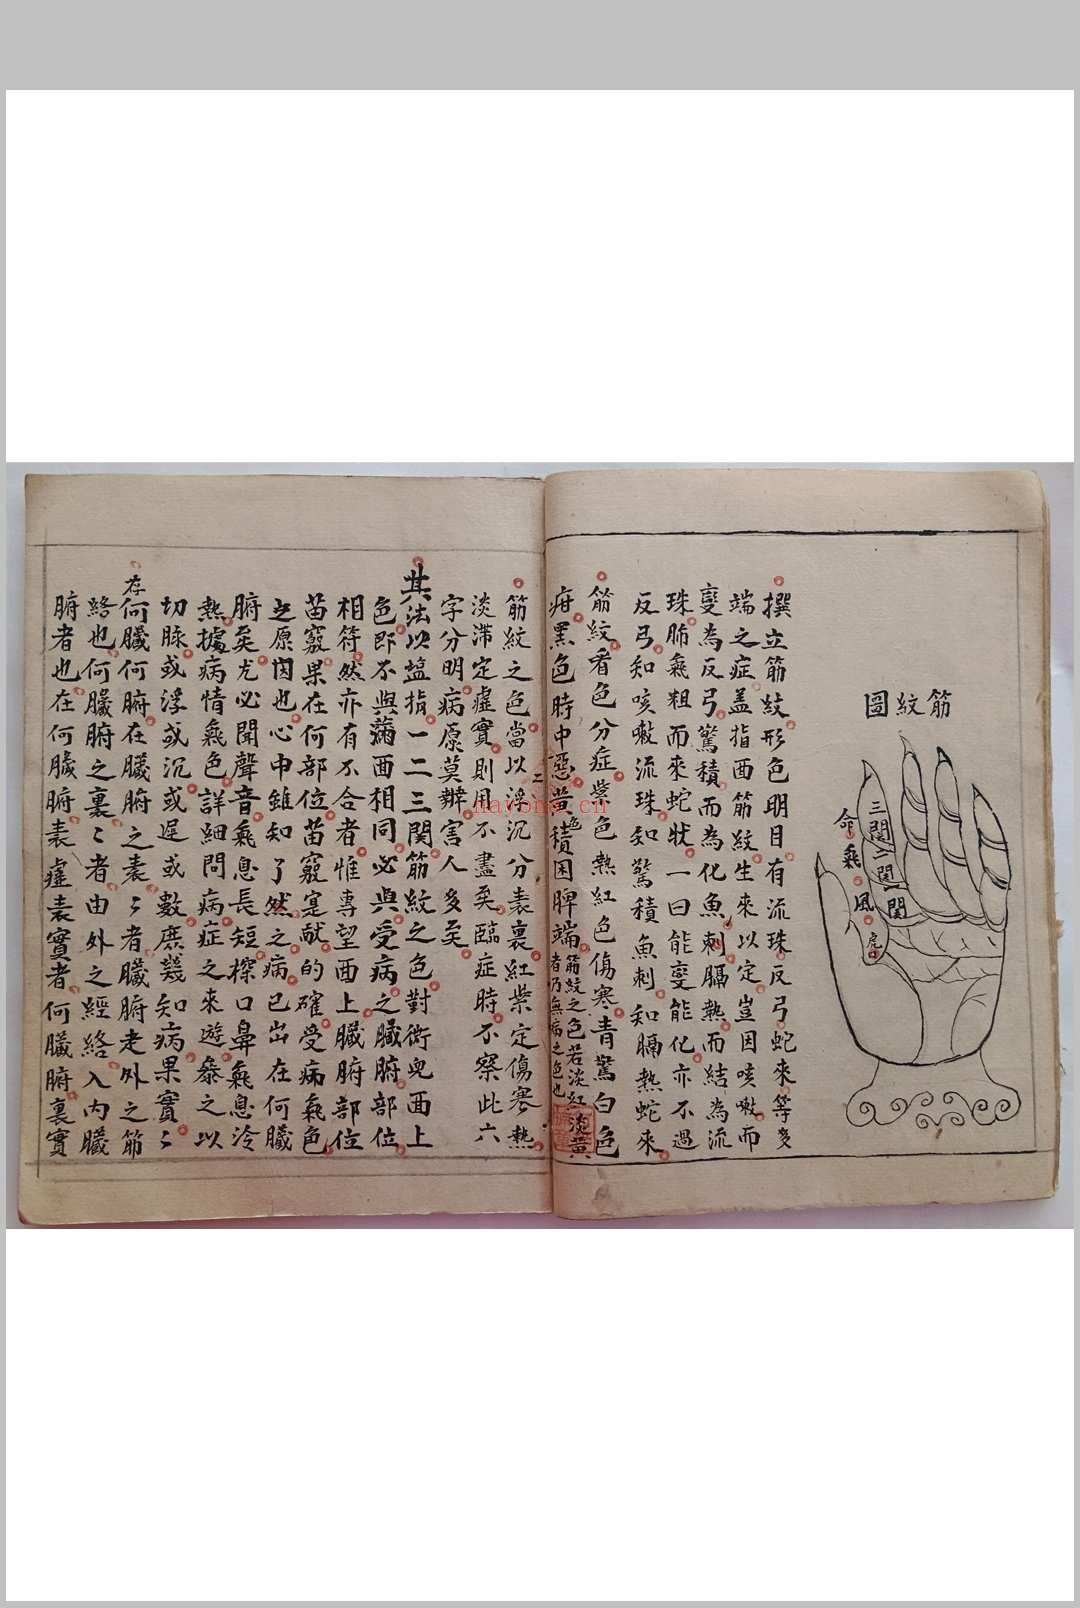 筋紋圖
三関
二関
一関
命
氣
風
虎口
撰立筋紋形色明目有流珠反弓蛇來等多
端之症盖指面筋紋生來以定豈因咳嗽而
變為反弓驚積而為化魚刺膈熱而結為流
珠肺氣粗而來蛇狀一曰能變能化亦不過
反弓知咳嗽流珠知驚積魚刺知膈熱蛇來
筋紋看色分症紫色熱紅色傷寒青驚白色
疳黑色時中惡黄色積困脾端筋紋之色若淡紅淡黄
者乃無病之色也
筋紋之色當以浮沉分表裏紅紫定傷寒熱
淡滞定虛實則用不盡矣臨症時不察此六
字分明病原莫辨害人多矣
其法以塩指一二三関筋紋之色對衝兜面上
色即不與满面相同必與受病之臟腑部位
相符然亦有不合者惟專望面上臟腑部位
苗竅果在何部位苗竅寔献的確受病氣色
之原因也心中雖知了然之病已出在何臟
腑矣尤必聞聲音氣息長短探口鼻氣息冷
熱據病情氣色詳細問病症之來遊叅之以
切脉或浮或沉或遲或數庶幾知病果實〻
存何臟何腑在臟腑之表〻者臟腑走外之筋
絡也何臟腑之裏〻者由外之經絡入内臟
腑者也在何臟腑表虛表實者何臟腑裏實
navono.cn